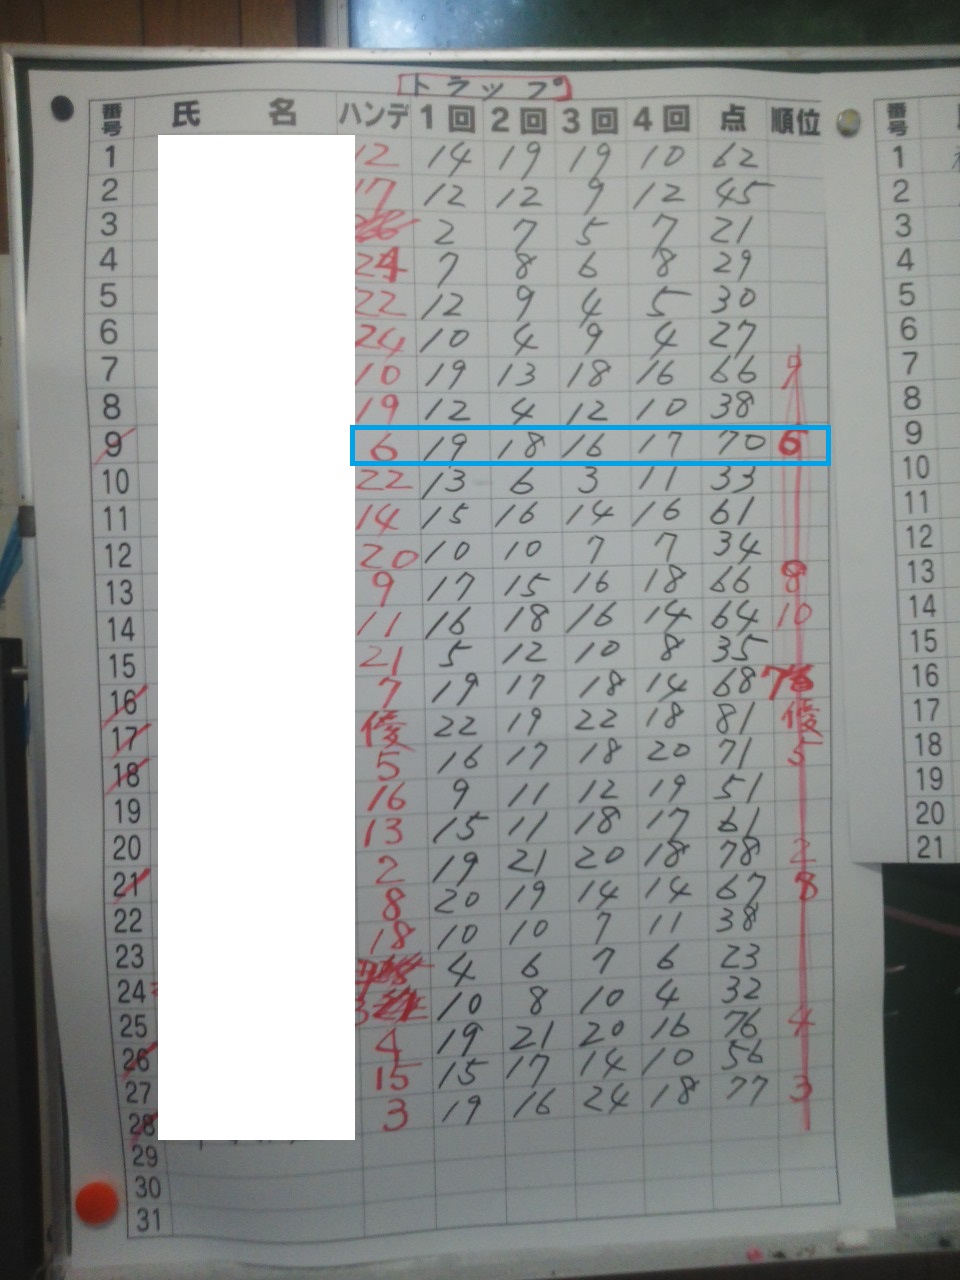 トラップ
番号 氏 名 ハンデ 1回 2回 3回 4回 点 順位
1 12 14 19 19 10 62
2 17 12 12 9 12 45
3 2 7 5 7 21
4 24 7 8 6 8 29
5 22 12 9 4 5 30
6 24 10 4 9 4 27
7 10 19 13 18 16 66 9
8 19 12 4 12 10 38
9 6 19 18 16 17 70 6
10 22 13 6 3 11 33
11 14 15 16 14 16 61
12 20 10 10 7 7 34
13 9 17 15 16 18 66 8
14 11 16 18 16 14 64 10
15 21 5 12 10 8 35
16 7 19 17 18 14 68 7
17 優 22 19 22 18 81 優
18 5 16 17 18 20 71 5
19 16 9 11 12 19 51
20 13 15 11 18 17 61
21 2 19 21 20 18 78 2
22 8 20 19 14 14 67 8
23 18 10 10 7 11 38
24 4 6 7 6 23
25 10 8 10 4 32
26 4 19 21 20 16 76 4
27 15 15 17 14 10 56
28 3 19 16 24 18 77 3
29
30
31
番号
1
2
3
4
5
6
7
8
9
10
11
12
13
14
15
16
17
18
19
20
21